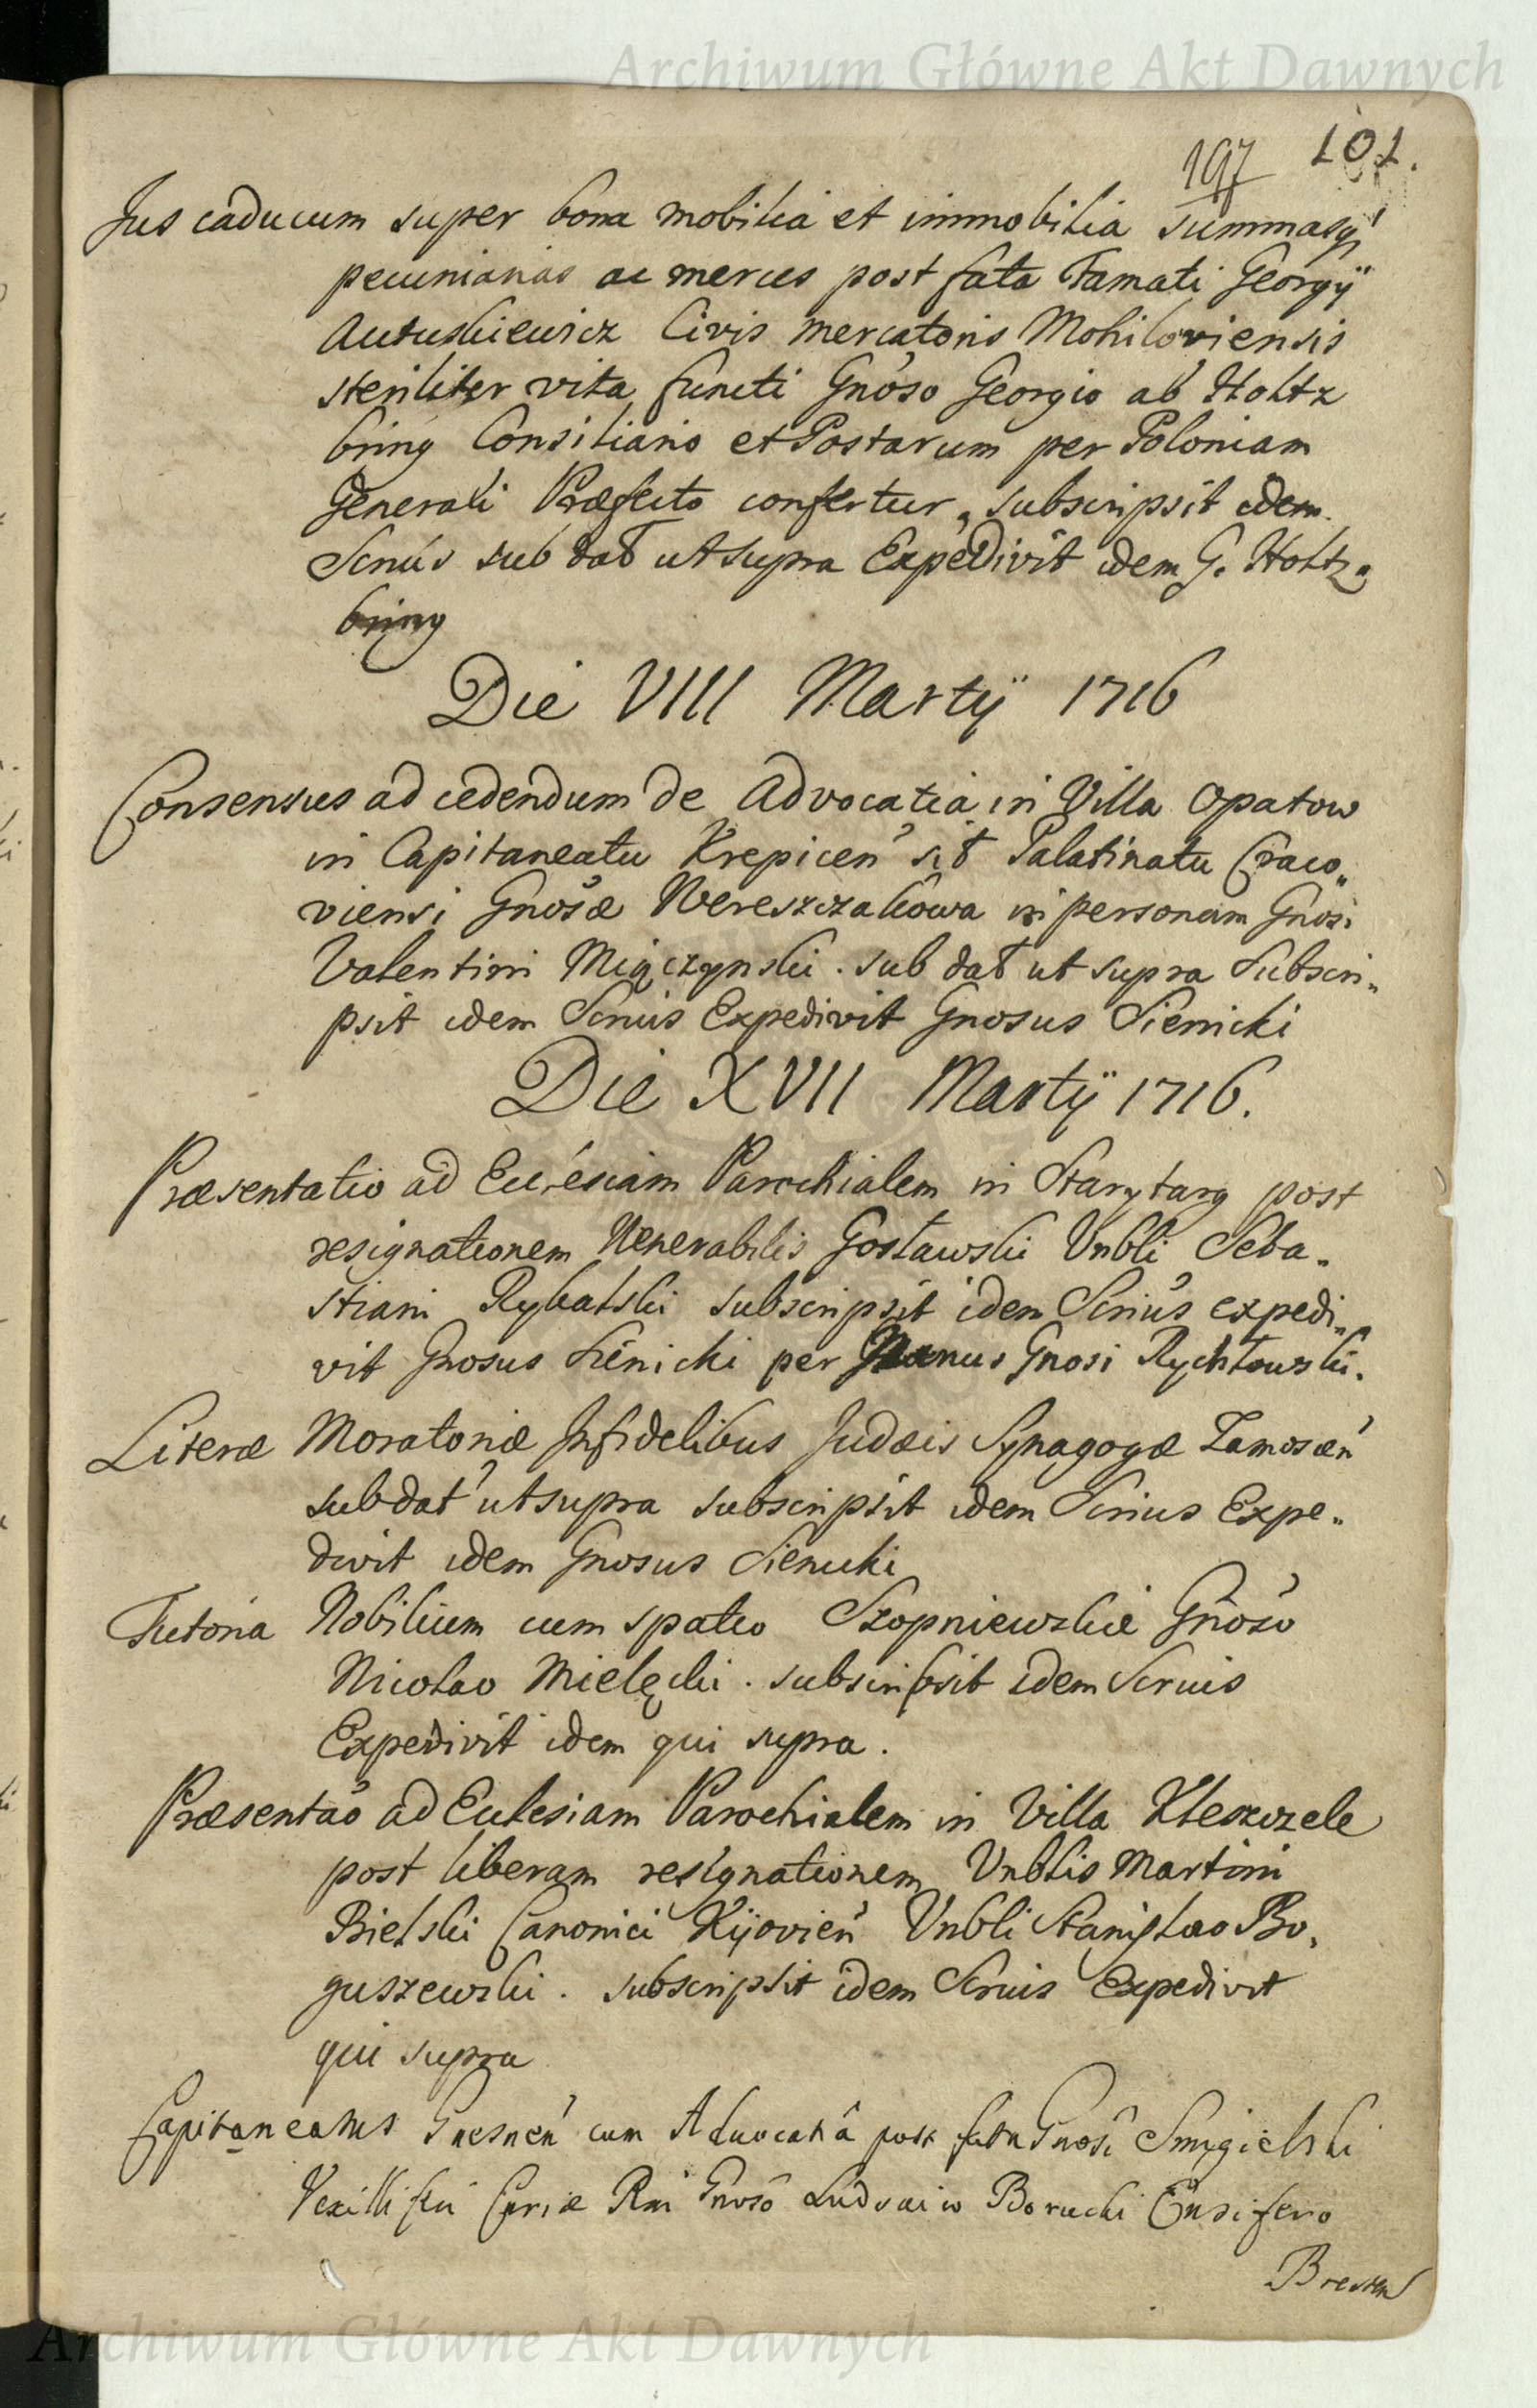 Archiwum Główne Akt Dawnych
197 101.
Jus caducum super bona mobilia et immobilia summasq́
pecuniarias ac merces post fata Famati Georgÿ
Autuskiewicz Civis mercatoris Mohiloviensis
steriliter vita functi Gnoso Georgio ab Holtz
bring Consiliario et Postarum per Poloniam
Generali Præfecto confertur, subscripsit idem
Srmus sub dat ut supra Expedivit idem G. Holtz„
bring
Die VIII Martÿ 1716
Consensus ad cedendum de Advocatia in Villa Opatow
in Capitaneatu Krepicen sit Palatinatu Craco„
viensi Gnosæ Wereszczakowa in personam Gnosi
Valentini Miączynski . sub dat ut supra Subscri„
psit idem Srmus Expedivit Gnosus Sienicki
Die XVII Martÿ 1716.
Præsentatio ad Ecclesiam Parochialem in Starytarg post
resignationem Venerabilis Gosławski Vnbli Seba„
stiani Rybalski subscripsit idem Srmus expedi„
vit Gnosus Sienicki per Manus Gnosi Rychłowski.
Literæ Moratoriæ Infidelibus Judæis Synagogæ Zamoscen
sub dat ut supra subscripsit idem Srmus Expe„
divit idem Gnosus Sienicki
Tutoria Nobilium cum spatio Szopniewskie Gnoso
Nicolao Mielęcki . subscripsit idem Srmus
Expedivit idem qui supra .
Præsentao ad Ecclesiam Parochialem in Villa Kleszczele
post liberam resignationem Vnblis Martini
Bielski Canonici Kijovien Vnbli Stanislao Bo„
guszewski . subscripsit idem Srmus Expedivit
qui supra
Capitaneatus Gnesnen cum Advocatiâ post fata Gnosi Smigielski
Vexilliferi Curiæ Rni Gnoso Ludovico Borucki Ensifero
Bresten
Archiwum Główne Akt Dawnych